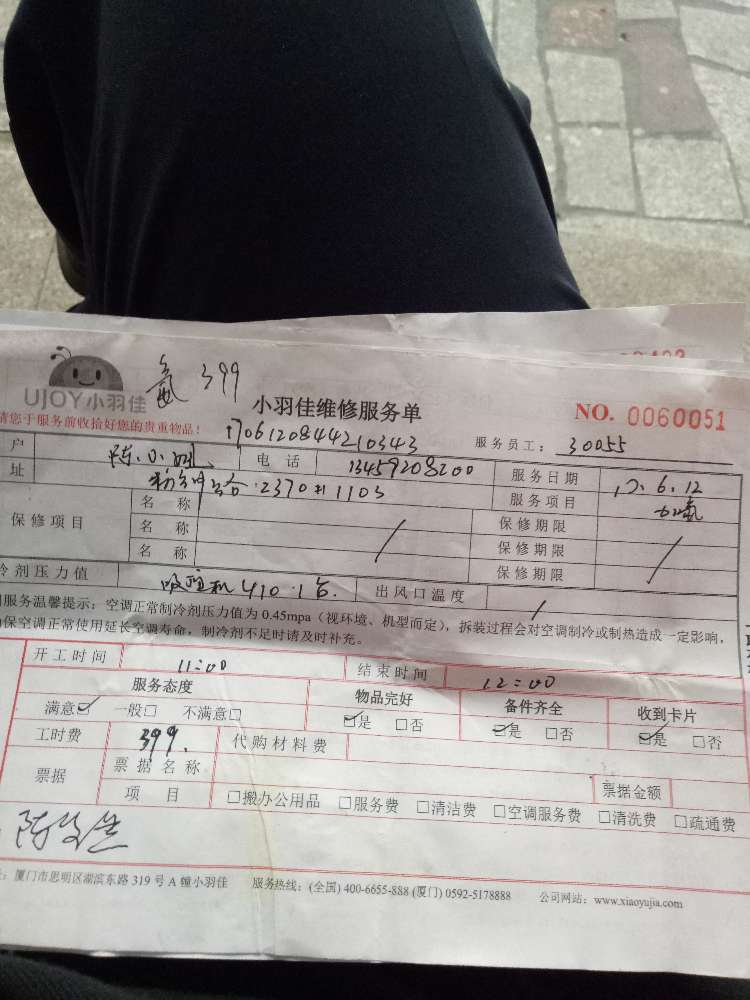 氟 399
UJOY小羽佳
小羽佳维修服务单
NO. 0060051
请您于服务前收拾好您的贵重物品!
170612084421 0343
服务员工: 30055
户
电话 13459208200
服务日期 17.6.12
址
2370#1103
服务项目
保修项目
名称
保修期限
名称 /
保修期限 /
名称
保修期限
冷剂压力值 410.1台.
出风口温度 /
服务温馨提示:空调正常制冷剂压力值为 0.45mpa(视环境、机型而定),拆装过程会对空调制冷或制热造成一定影响,
保空调正常使用延长空调寿命,制冷剂不足时请及时补充。
开工时间 11:00 结束时间 12:00
服务态度 物品完好 备件齐全 收到卡片
满意☑ 一般□ 不满意□ ☑是 □否 ☑是 □否 ☑是 □否
工时费 399. 代购材料费
票据 票据名称 票据金额
项目 □搬办公用品 □服务费 □清洁费 □空调服务费 □清洗费 □疏通费
陈先生
:厦门市思明区湖滨东路 319 号 A 幢小羽佳 服务热线:(全国) 400-6655-888 (厦门) 0592-5178888 公司网站:www.xiaoyujia.com